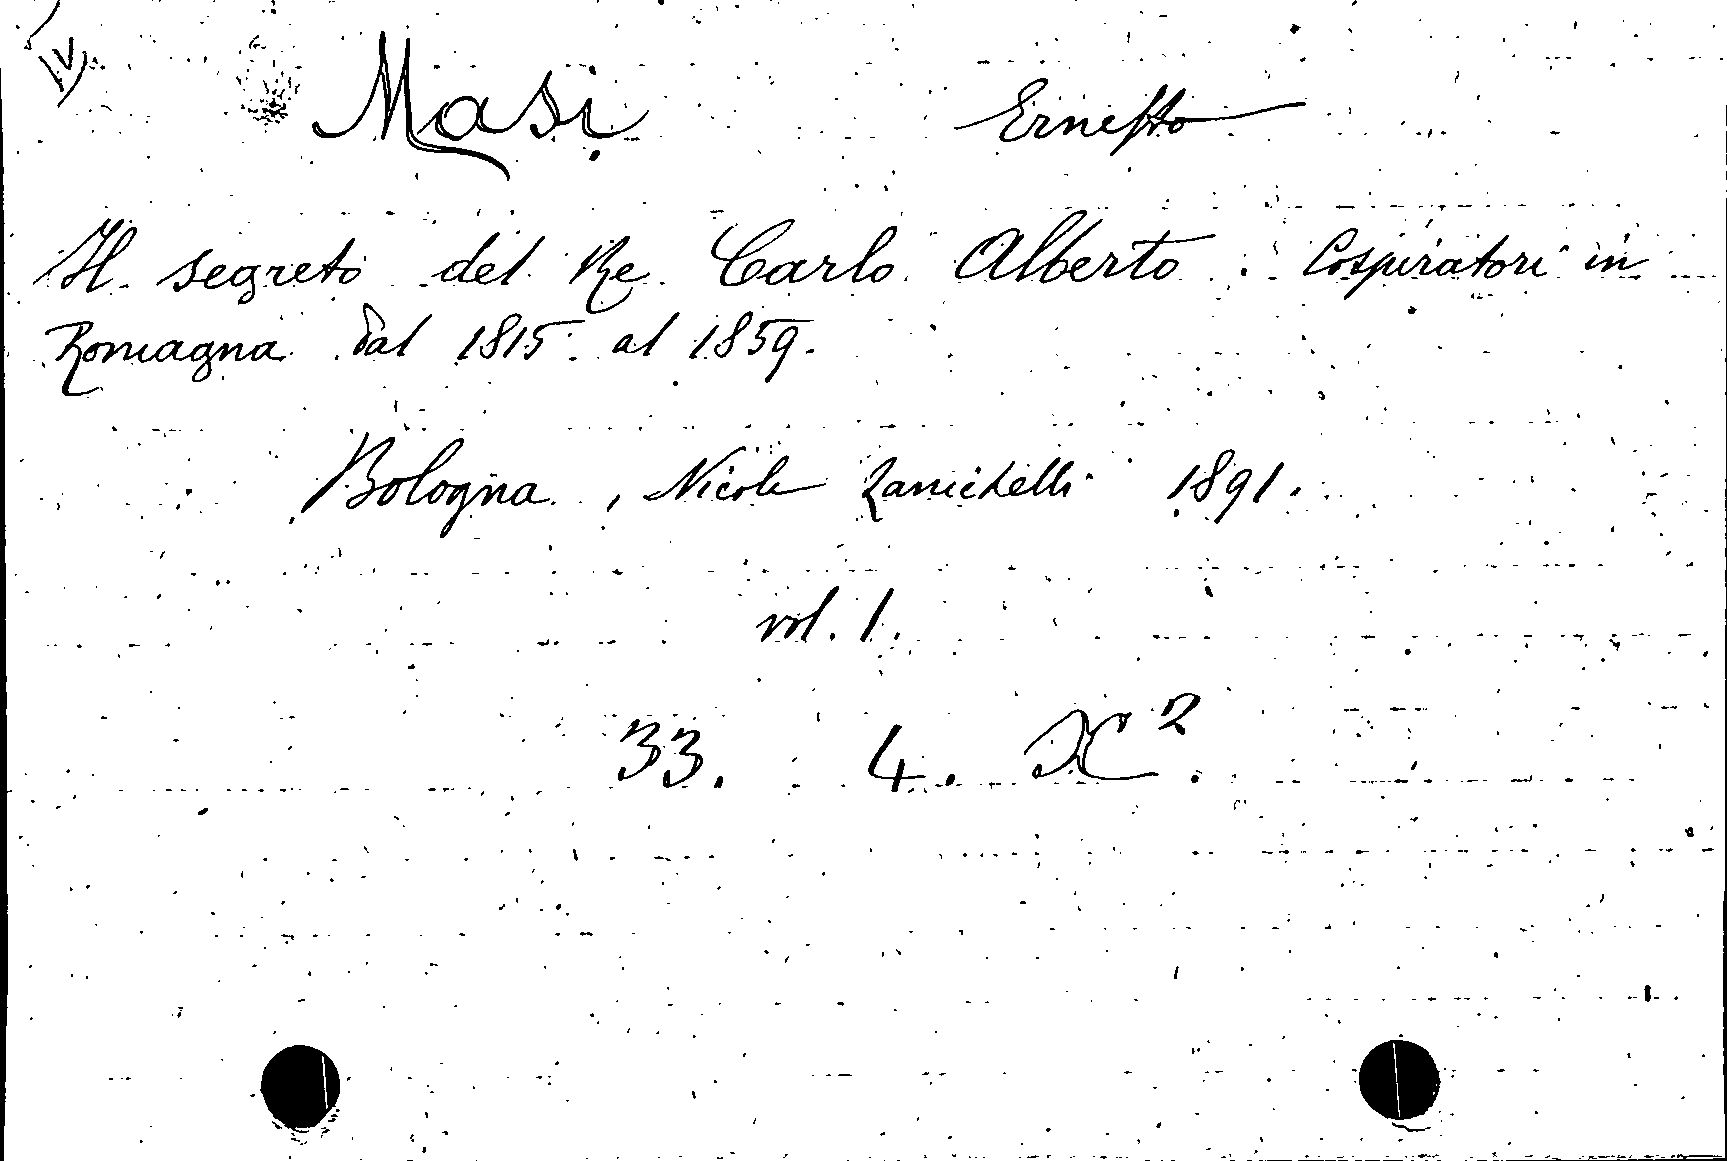 IV
Masi Ernesto
Il segreto del Re Carlo Alberto. Cospiratori in
Romagna dal 1815 al 1859.
Bologna, Nicola Zanichelli 1891.
vol. 1.
33. 4.